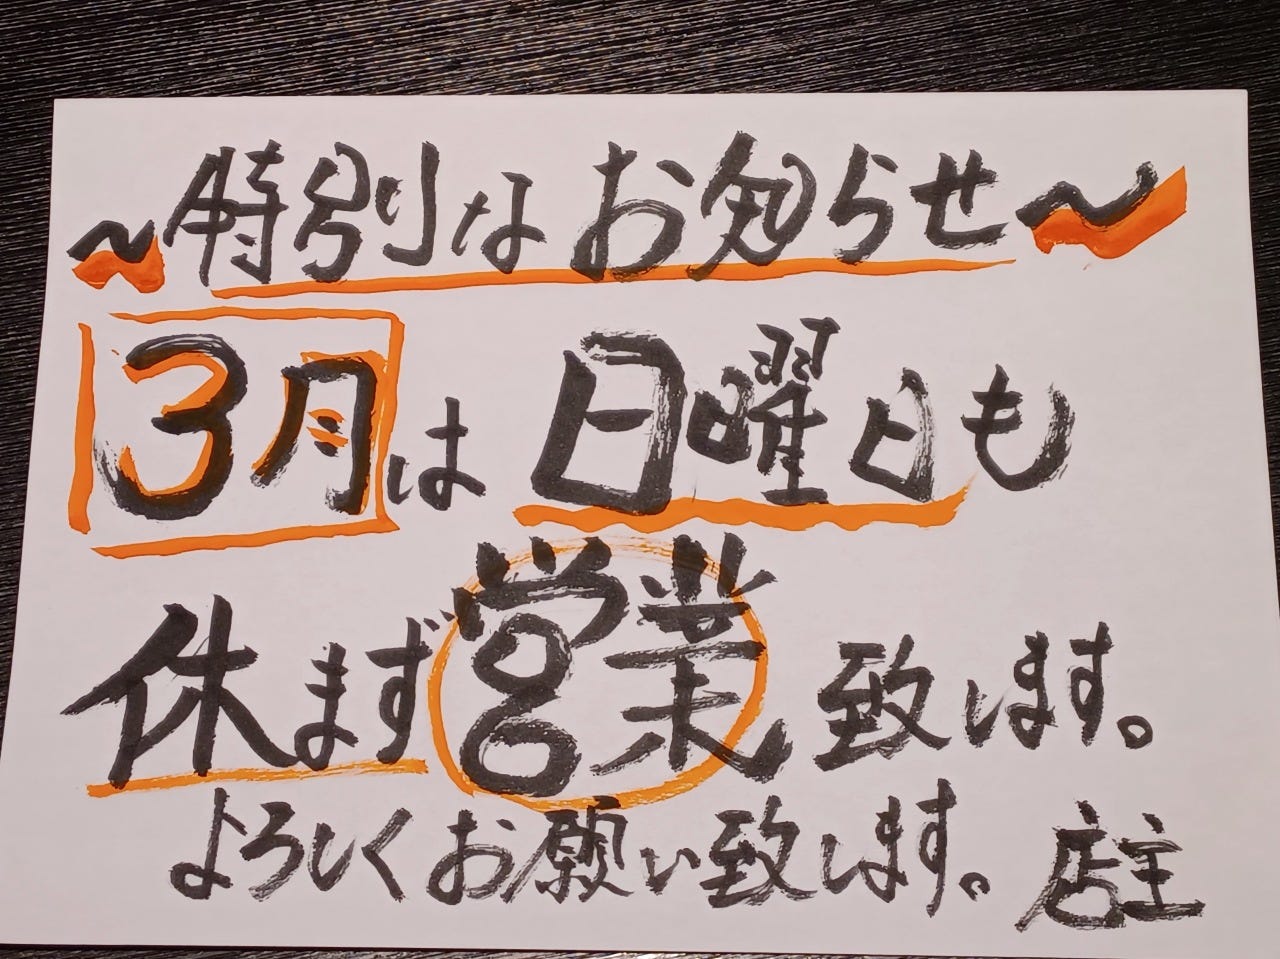 ~特別なお知らせ~
3月は日曜日も
休まず営業致します。
よろしくお願い致します。店主